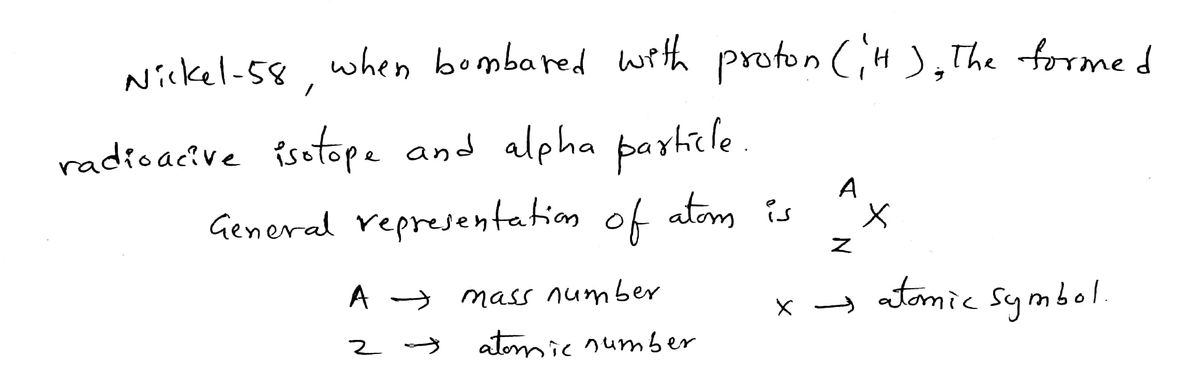 Nickel-58, when bombared with proton (¹₁H), The formed
radioacive isotope and alpha particle.
General representation of atom is ᴬ_Z X
A → mass number
X → atomic symbol.
Z → atomic number